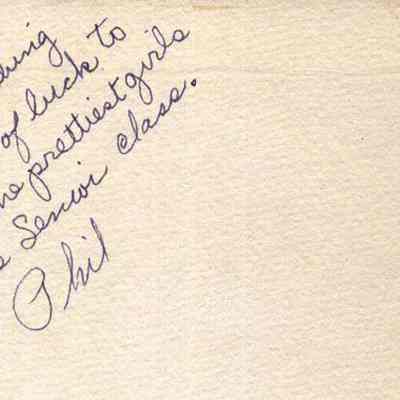 of luck to
prettiest girls
Senior class.
Phil